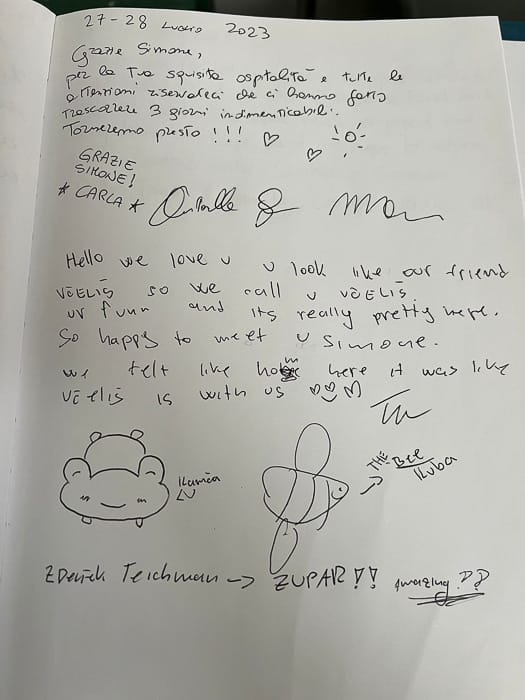 27-28 Luglio 2023
Grazie Simone,
per la Tua squisita ospitalità e tutte le
attenzioni riservateci che ci hanno fatto
trascorrere 3 giorni indimenticabili.
Torneremo presto !!!
GRAZIE
SIMONE!
* CARLA *
Hello we love u u look like our friend
VČELIŠ so we call u VČELIŠ.
ur funn and its really pretty here.
So happy to meet u Simone.
we felt like home here it was like
VČeliš is with us
THE BEE
Kuba
Zdeněk Teichman -> ZUPAR!! Amazing!!